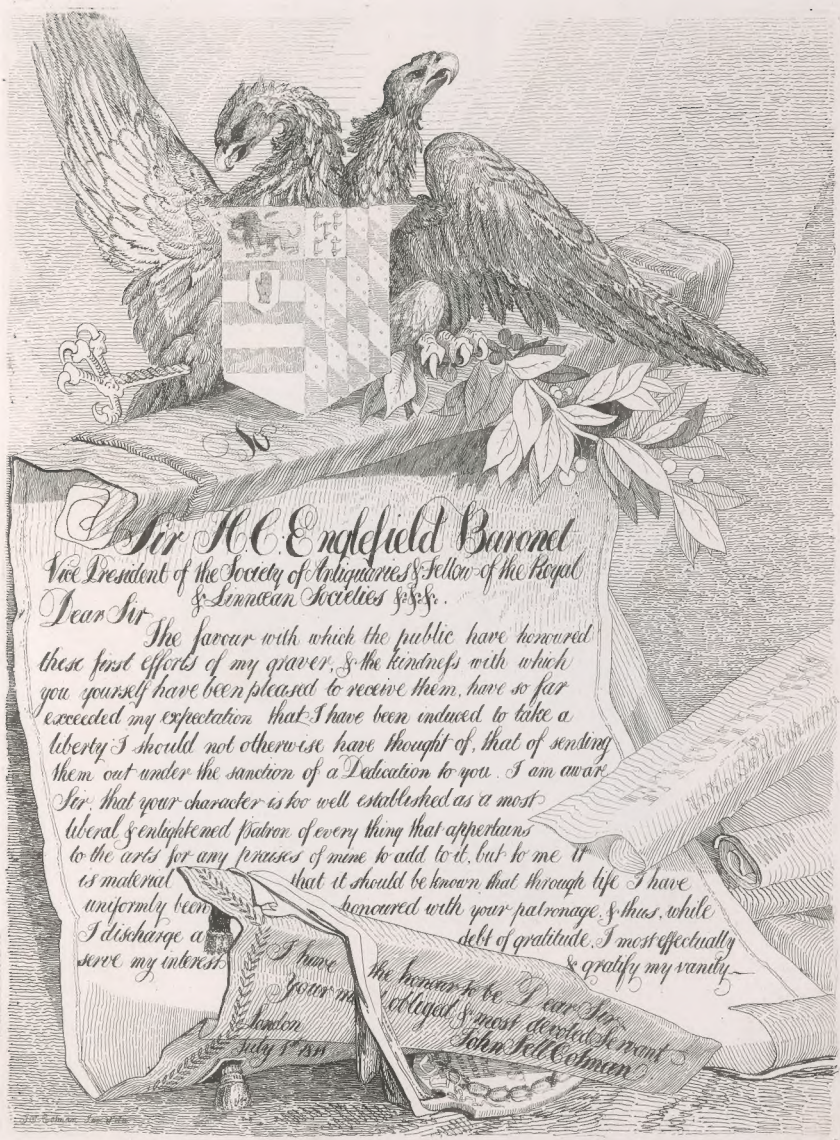 To
Sir H.C. Englefield Baronet
Vice President of the Society of Antiquaries & Fellow of the Royal
& Linnœan Societies &c &c &c.
Dear Sir
The favour with which the public have honoured
these first efforts of my graver, & the kindness with which
you yourself have been pleased to receive them, have so far
exceeded my expectation that I have been induced to take a
liberty I should not otherwise have thought of, that of sending
them out under the sanction of a Dedication to you. I am aware
Sir, that your character is too well established as a most
liberal & enlightened Patron of every thing that appertains
to the arts for any praises of mine to add to it, but to me it
is material that it should be known that through life I have
uniformly been honoured with your patronage, & thus, while
I discharge a debt of gratitude, I most effectually
serve my interest & gratify my vanity—
I have the honour to be Dear Sir,
Your most obliged & most devoted Servant
John Sell Cotman
London
July 1st 1811